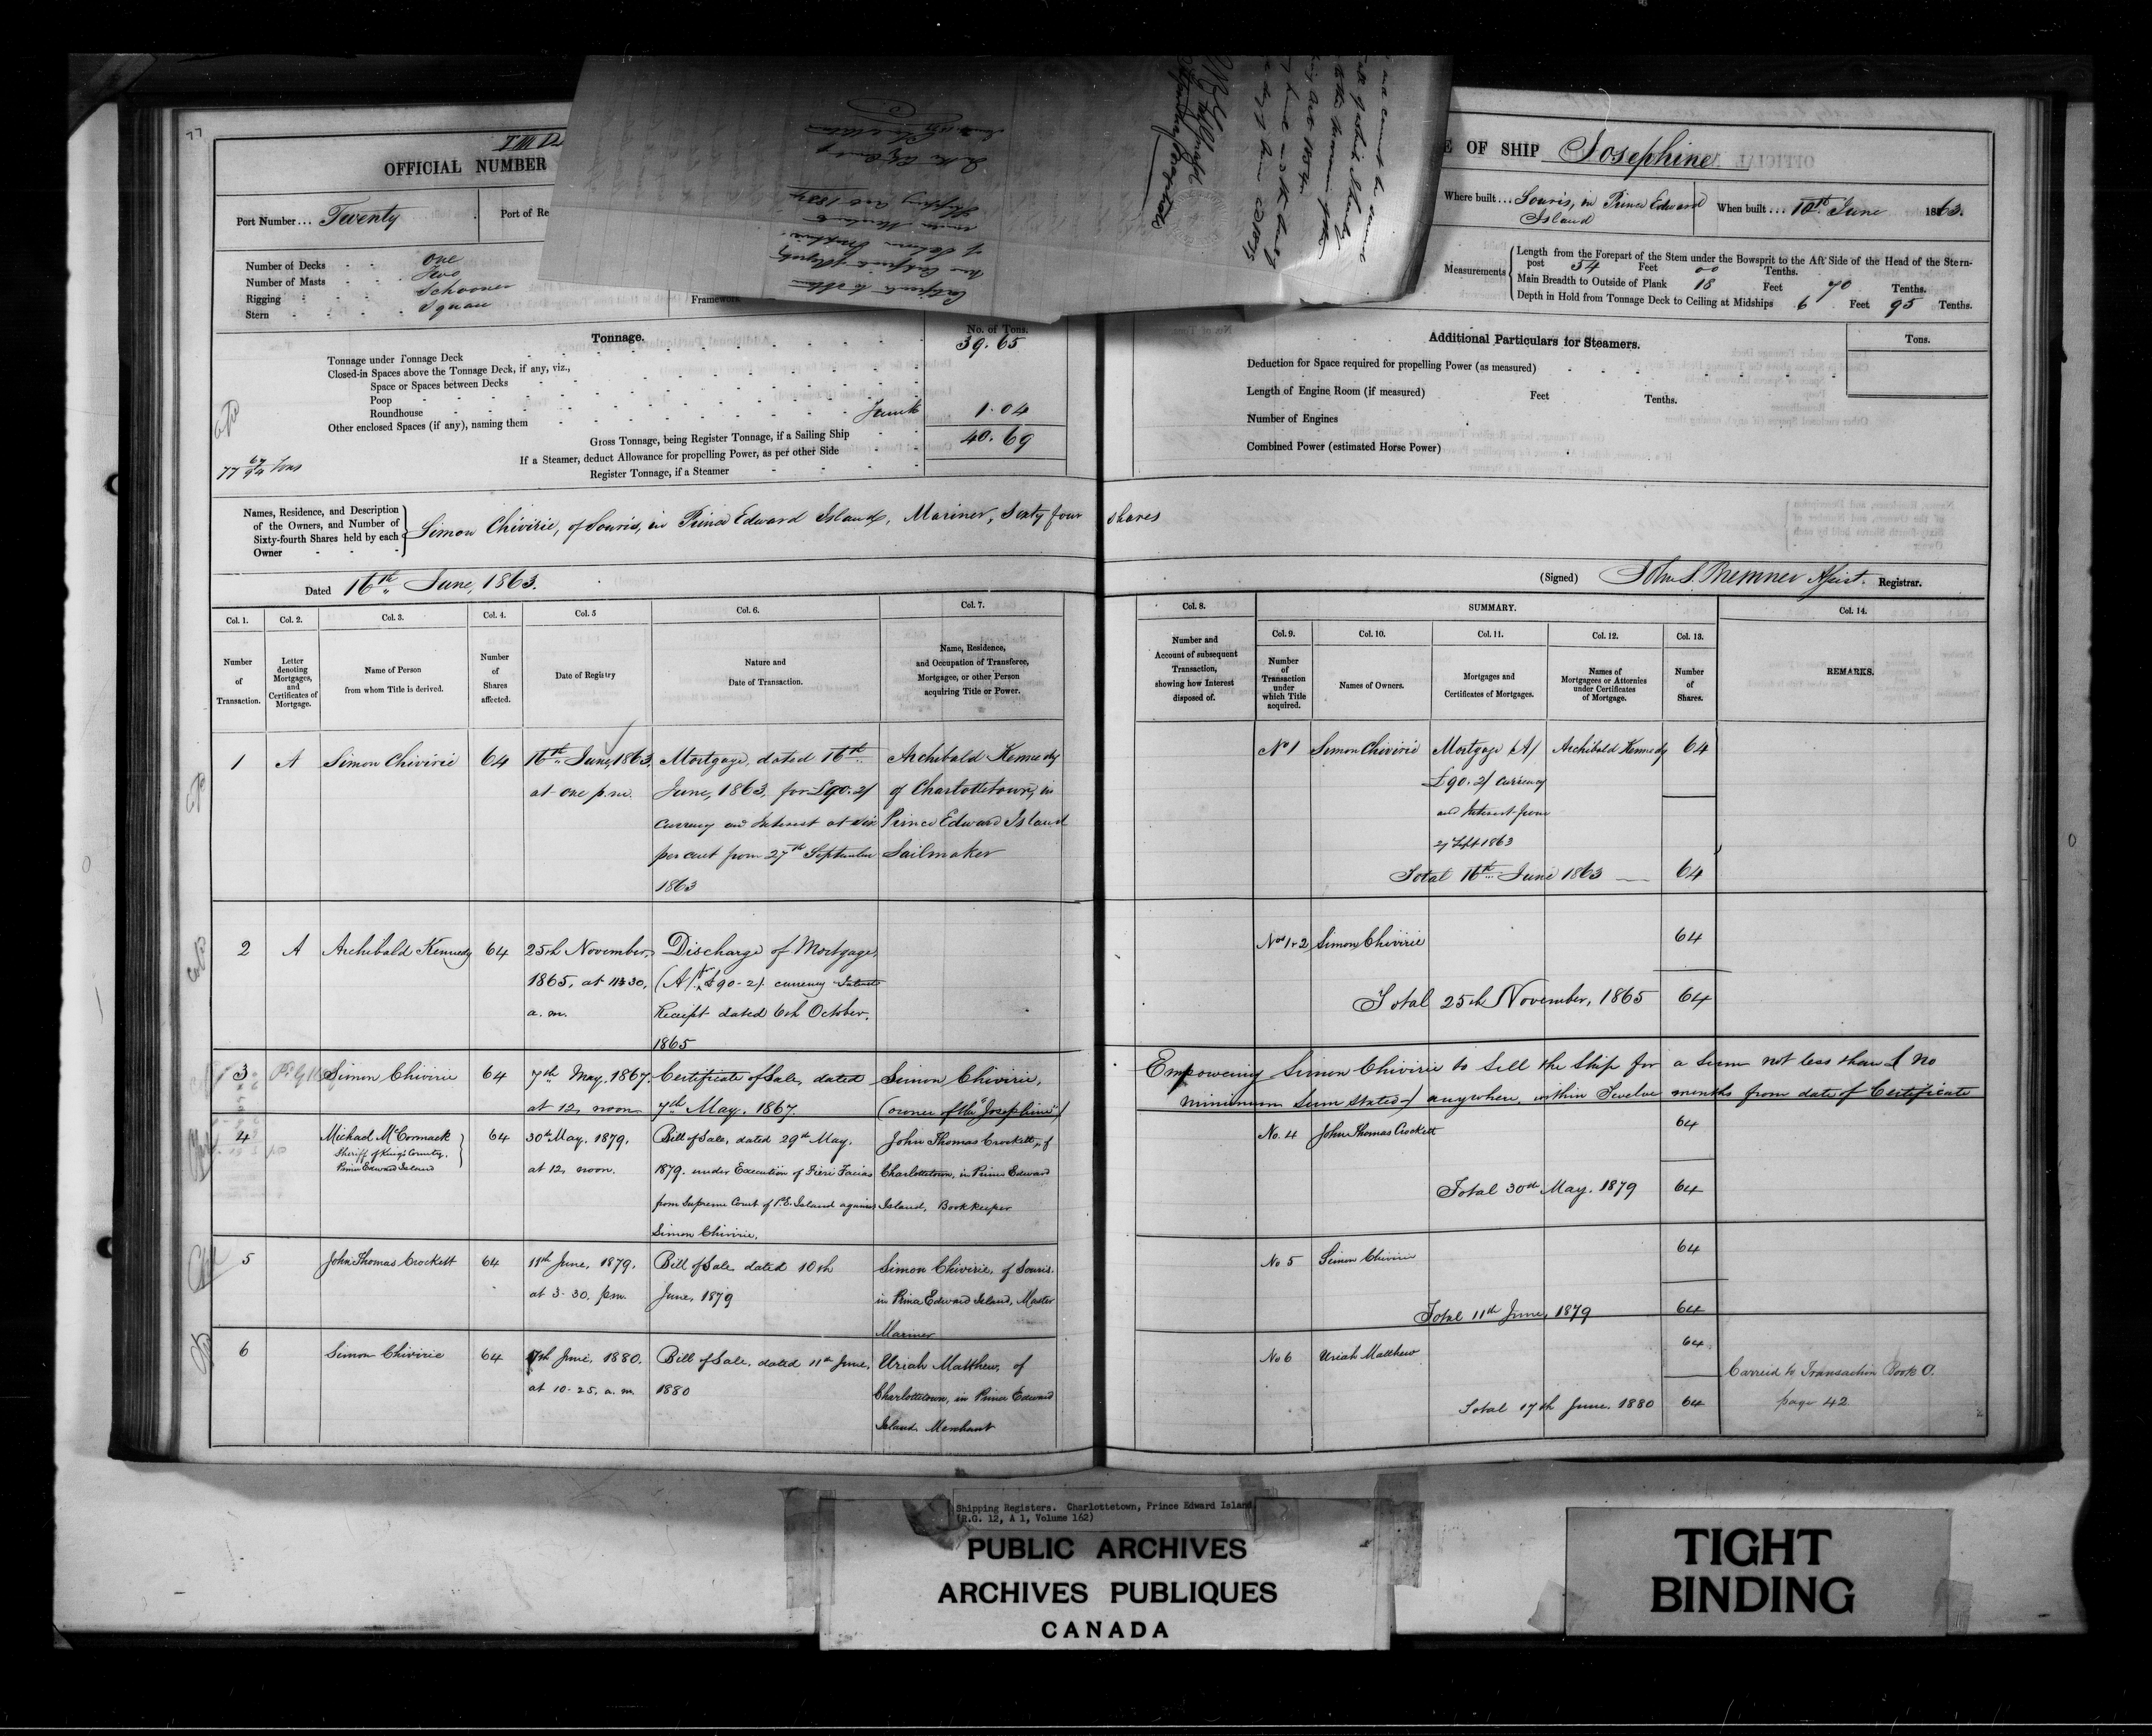 77
OFFICIAL NUMBER
OF SHIP Josephine
Port Number... Twenty
Port of Re
Where built... Souris, in Prince Edward
Island
When built... 10th June 1863.
Number of Decks One
Number of Masts Two
Rigging Schooner
Stern Square
Framework
Measurements
Length from the Forepart of the Stem under the Bowsprit to the Aft Side of the Head of the Stern-
post 54 Feet 00 Tenths.
Main Breadth to Outside of Plank 18 Feet 70 Tenths.
Depth in Hold from Tonnage Deck to Ceiling at Midships 6 Feet 95 Tenths.
Tonnage.
No. of Tons.
Tonnage under Tonnage Deck 39.65
Closed-in Spaces above the Tonnage Deck, if any, viz.,
Space or Spaces between Decks
Poop
Roundhouse
Other enclosed Spaces (if any), naming them 1.04
Gross Tonnage, being Register Tonnage, if a Sailing Ship 40.69
If a Steamer, deduct Allowance for propelling Power, as per other Side
Register Tonnage, if a Steamer
Additional Particulars for Steamers.
Tons.
Deduction for Space required for propelling Power (as measured)
Length of Engine Room (if measured) Feet Tenths.
Number of Engines
Combined Power (estimated Horse Power)
Names, Residence, and Description
of the Owners, and Number of
Sixty-fourth Shares held by each
Owner
Simon Chivirie, of Souris, in Prince Edward Island, Mariner, Sixty four shares
Dated 16th June, 1863.
(Signed) John S. Bremner Asist. Registrar.
Col. 1. Col. 2. Col. 3. Col. 4. Col. 5 Col. 6. Col. 7.
Number of Transaction.
Letter denoting Mortgages, and Certificates of Mortgage.
Name of Person from whom Title is derived.
Number of Shares affected.
Date of Registry
Nature and Date of Transaction.
Name, Residence, and Occupation of Transferee, Mortgagee, or other Person acquiring Title or Power.
Col. 8. SUMMARY. Col. 14.
Col. 9. Col. 10. Col. 11. Col. 12. Col. 13.
Number and Account of subsequent Transaction, showing how Interest disposed of.
Number of Transaction under which Title acquired.
Names of Owners.
Mortgages and Certificates of Mortgages.
Names of Mortgagees or Attornies under Certificates of Mortgage.
Number of Shares.
REMARKS.
1 A Simon Chivirie 64 16th June, 1863, Mortgage dated 16th Archibald Kennedy
at one p.m. June, 1863, for £90.2/ of Charlottetown, in
currency and Interest at six Prince Edward Island
per cent from 27th September Sailmaker
1863
No 1 Simon Chivirie Mortgage (A) Archibald Kennedy 64
£90.2/ currency
and Interest from
27 Sept 1863
Total 16th June 1863 64
2 A Archibald Kennedy 64 25th November, Discharge of Mortgage
1865, at 11.30, (A) for £90-2/ currency
a.m. Receipt dated 6th October,
1865
Nos 1+2 Simon Chivirie 64
Total 25th November, 1865 64
3 Simon Chivirie 64 7th May, 1867. Certificate of Sale, dated Simon Chivirie,
at 12, noon 7th May, 1867. (owner of the "Josephine")
Empowering Simon Chivirie to sell the Ship for a sum not less than £ no
minimum sum stated) anywhere, within Twelve months from date of Certificate
4 Michael McCormack 64 30th May, 1879, Bill of Sale, dated 29th May, John Thomas Crockett, of
Sheriff of King's County,
Prince Edward Island
at 12, noon. 1879, under Execution of Fieri Facias Charlottetown, in Prince Edward
from Supreme Court of P.E. Island against Island, Bookkeeper
Simon Chivirie.
No. 4 John Thomas Crockett 64
Total 30th May, 1879 64
5 John Thomas Crockett 64 11th June, 1879, Bill of Sale dated 10th Simon Chivirie, of Souris,
at 3-30, p.m. June, 1879 in Prince Edward Island, Master
Mariner
No 5 Simon Chivirie 64
Total 11th June, 1879 64
6 Simon Chivirie 64 17th June, 1880, Bill of Sale, dated 11th June, Uriah Matthew, of
at 10-25, a.m. 1880 Charlottetown, in Prince Edward
Island, Merchant
No 6 Uriah Matthew 64
Total 17th June, 1880 64
Carried to Transaction Book O.
page 42
Shipping Registers. Charlottetown, Prince Edward Island
(R.G. 12, A 1, Volume 162)
PUBLIC ARCHIVES
ARCHIVES PUBLIQUES
CANADA
TIGHT
BINDING